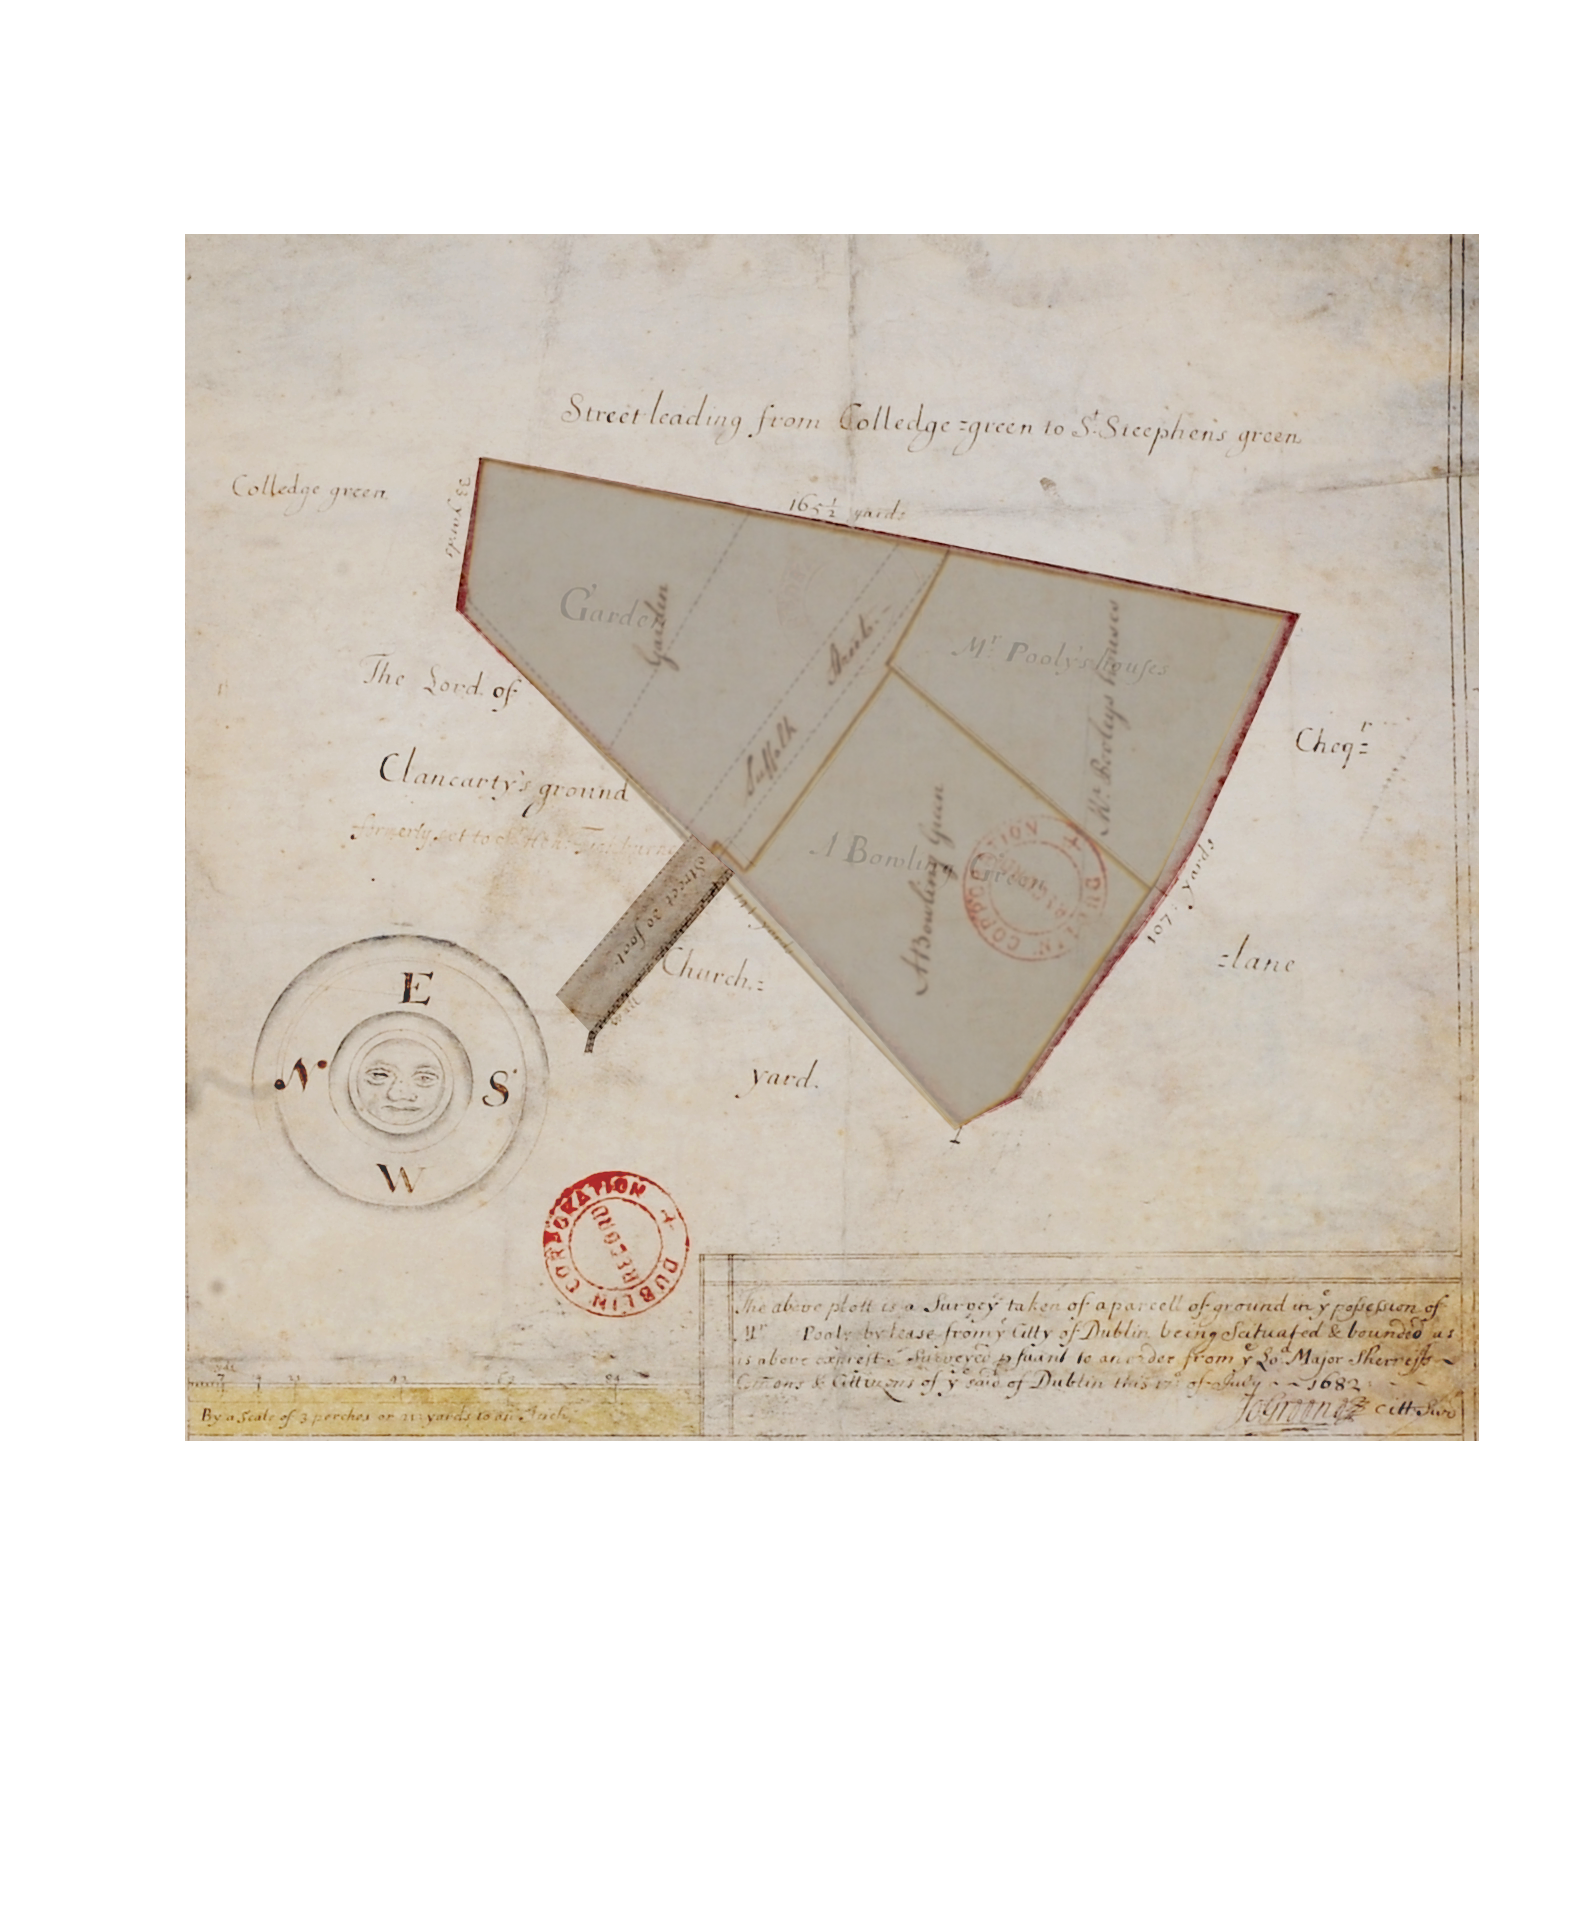 Street leading from Colledge=green to St. Steephens green
Colledge green
33 yards
165 1/2 yards
Garden
Garden
Suffolk Street
Mr. Pooly's houses
Mr. Pooleys houses
The Lord of
Clancarty's ground
formerly set to
Cheqr=
=lane
A Bowling Green
A Bowling Green
107 yards
Street 30 foot
yards
Church=
yard.
E
N
S
W
DUBLIN CORPORATION
RECORD
DUBLIN CORPORATION
RECORD
The above plott is a Survey taken of a parcell of ground in ye possession of
Mr Pooly by lease from ye Citty of Dublin being Scituated & bounded as
is above exprest. Surveyed psuant to an order from ye Lod Major Sherreffs
Comons & Cittizens of ye said of Dublin this 17 of July 1682
By a Scale of 3 perches or 21 yards to an Inch
Jo Greene Citt Survr